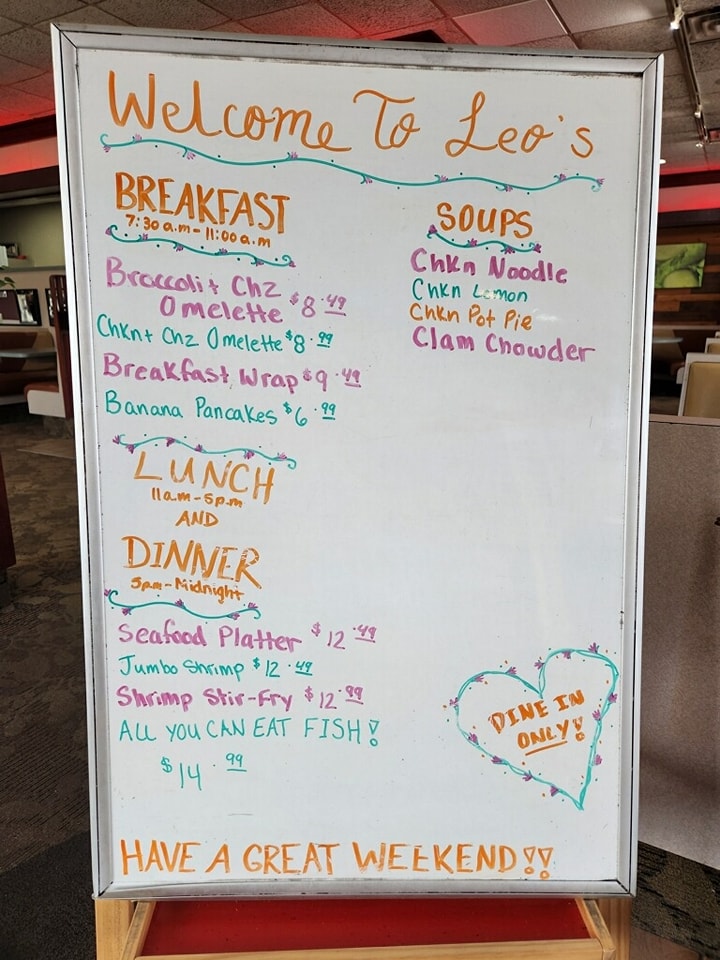 Welcome To Leo's
BREAKFAST
7:30 a.m - 11:00 a.m
Broccoli + Chz
Omelette $8.49
Chkn + Chz Omelette $8.99
Breakfast Wrap $9.49
Banana Pancakes $6.99
LUNCH
11a.m - 5p.m
AND
DINNER
5pm - Midnight
Seafood Platter $12.49
Jumbo Shrimp $12.49
Shrimp Stir-Fry $12.99
ALL YOU CAN EAT FISH!
$14.99
SOUPS
Chkn Noodle
Chkn Lemon
Chkn Pot Pie
Clam Chowder
DINE IN
ONLY!
HAVE A GREAT WEEKEND!!